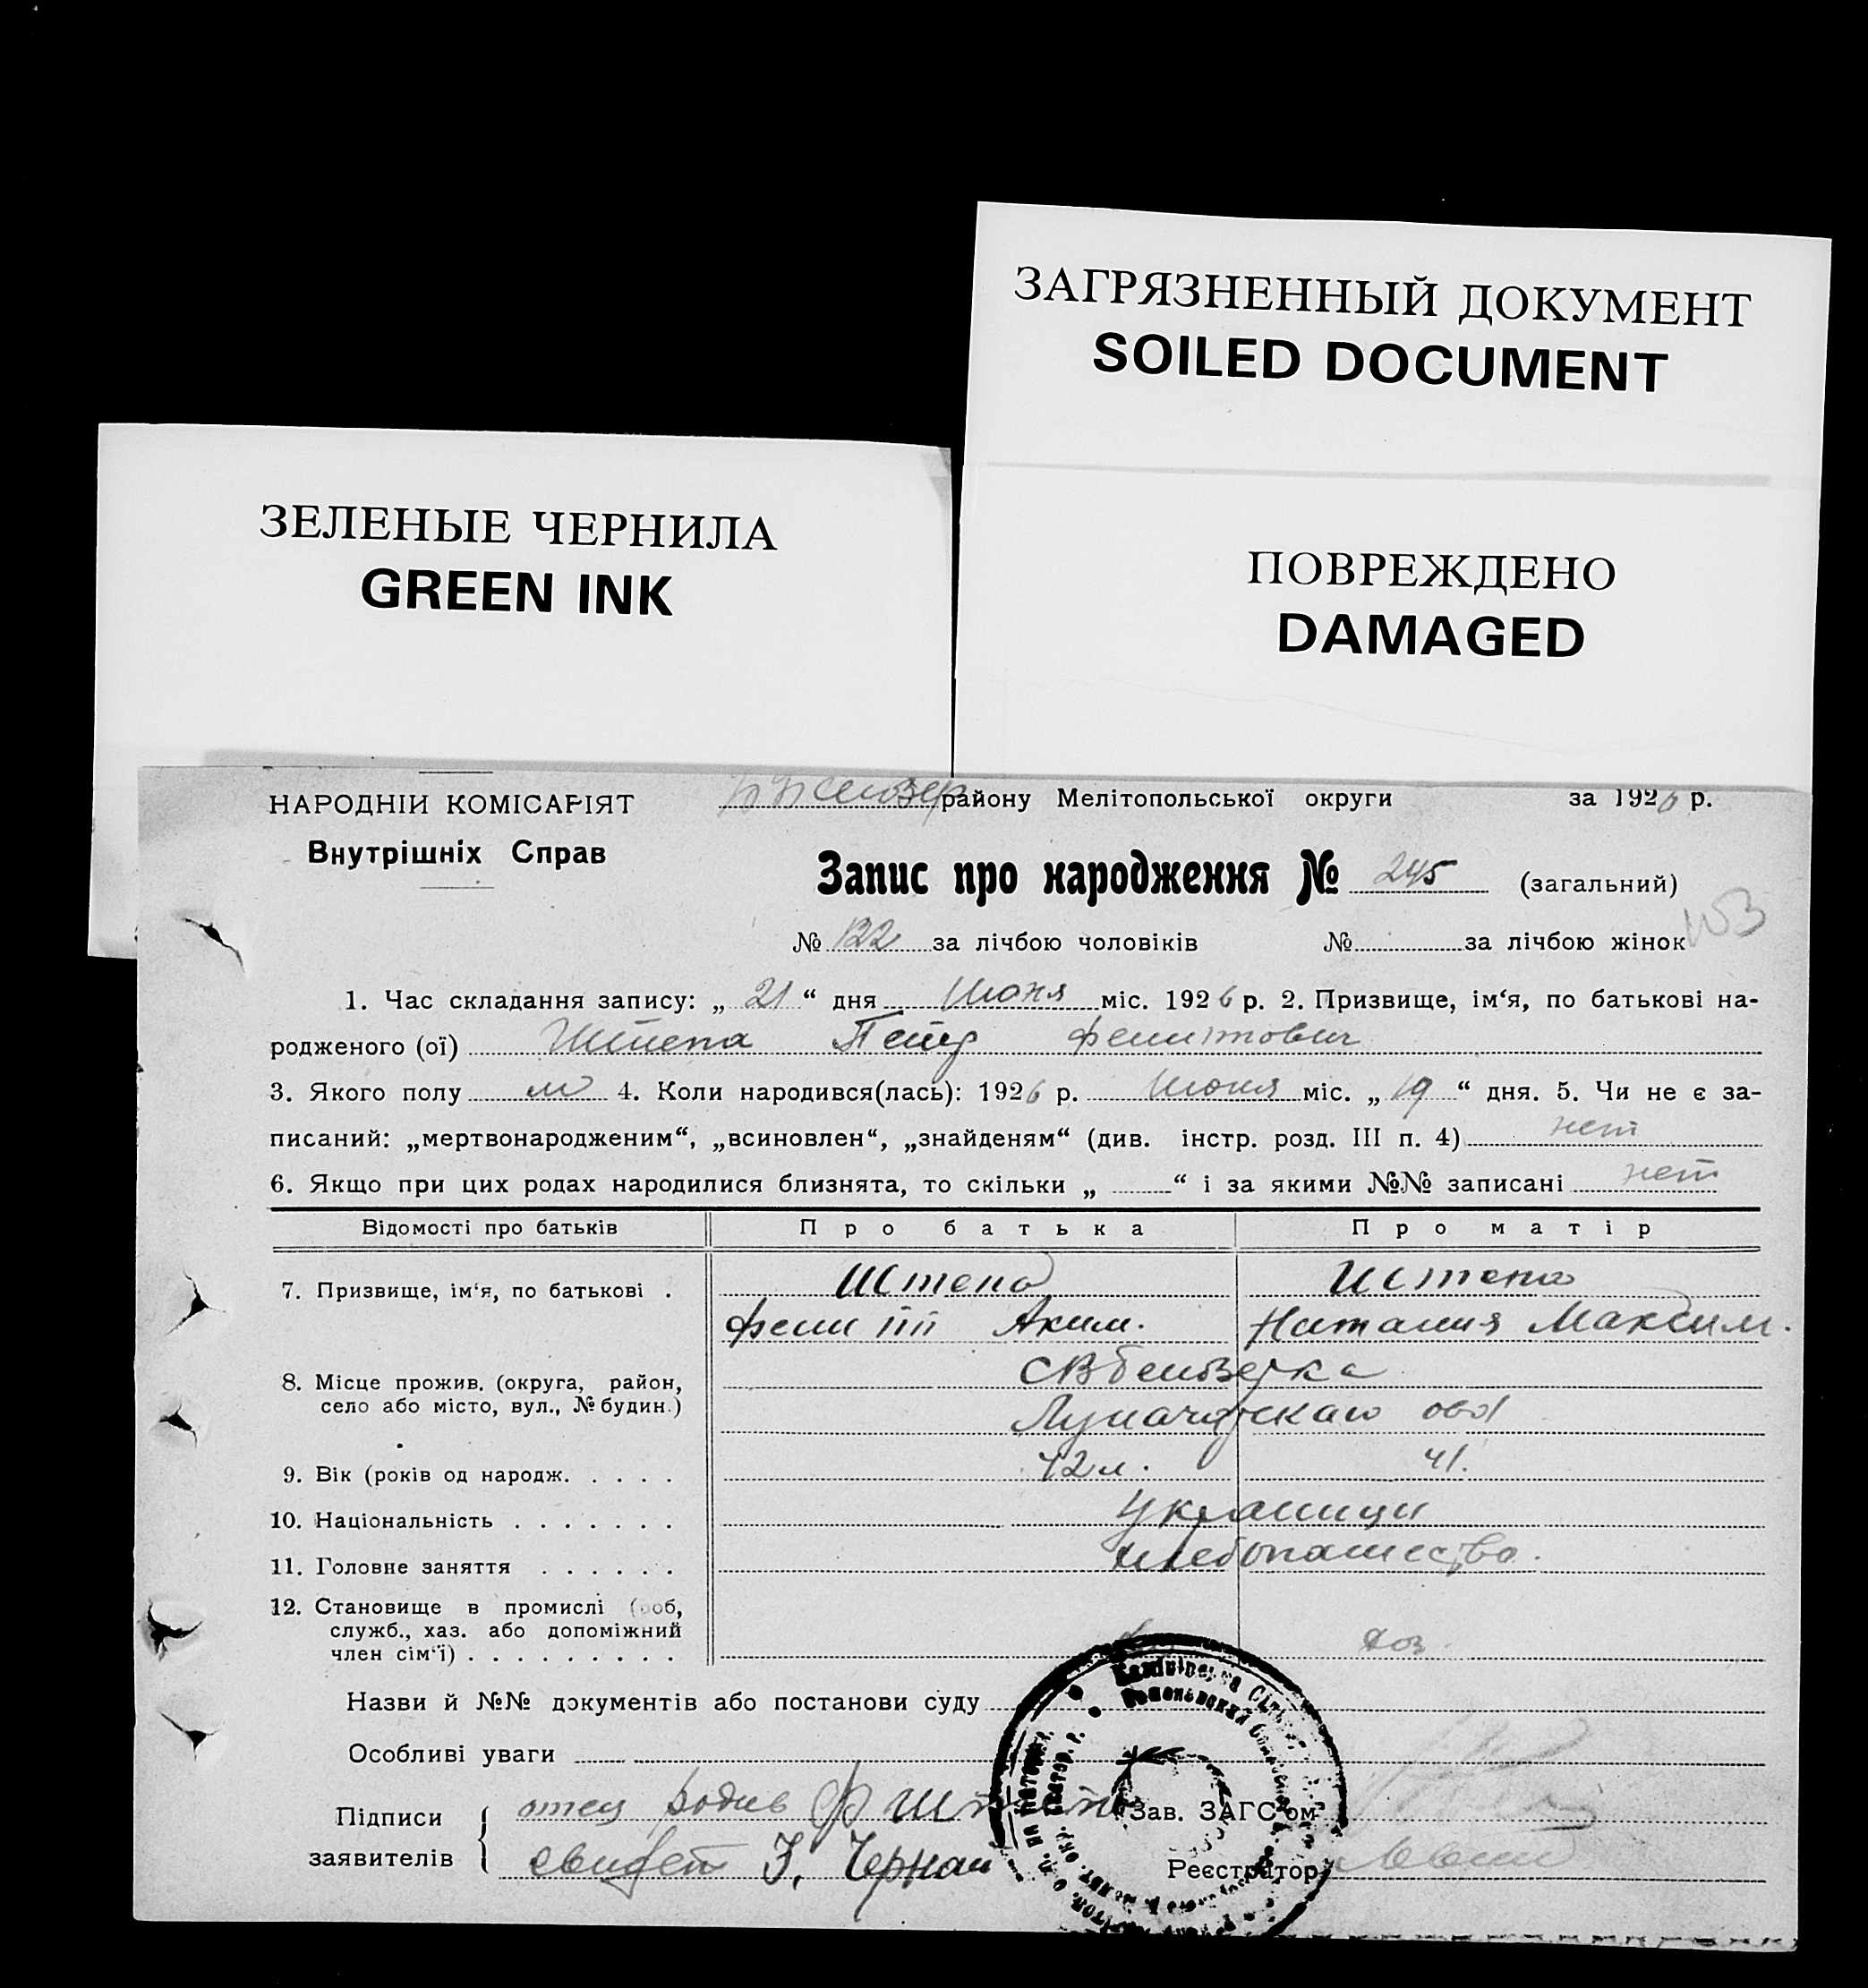 ЗАГРЯЗНЕННЫЙ ДОКУМЕНТ
SOILED DOCUMENT
ЗЕЛЕНЫЕ ЧЕРНИЛА
GREEN INK
ПОВРЕЖДЕНО
DAMAGED
НАРОДНІЙ КОМІСАРІЯТ
Внутрішніх Справ
району Мелітопольської округи за 1926 р.
Запис про народження № 245 (загальний)
№ 122 за лічбою чоловіків № за лічбою жінок
1. Час складання запису: „ 21 “ дня Июня міс. 1926 р. 2. Призвище, ім‘я, по батькові на-
родженого (ої) Штепа Петр
3. Якого полу м 4. Коли народився(лась): 1926 р. Июня міс. „ 19 “ дня. 5. Чи не є за-
писаний: „мертвонародженим“, „всиновлен“, „знайденям“ (див. інстр. розд. III п. 4) нет
6. Якщо при цих родах народилися близнята, то скільки „ “ і за якими №№ записані нет
Відомості про батьків Про батька Про матір
7. Призвище, ім‘я, по батькові . Штепа Штепа
Аким. Наталия Максим.
8. Місце прожив. (округа, район,
село або місто, вул., № будин.)
9. Вік (років од народж. . . . . 42 л. 41.
10. Національність . . . . . . . Украинци
11. Головне заняття . . . . . . хлебопашество.
12. Становище в промислі (роб,
служб., хаз. або допоміжний
член сім‘ї) . . . . . . . . . хоз
Назви й №№ документів або постанови суду
Особливі уваги
Підписи отец
Зав. ЗАГС‘ом
заявителів
Реєстратор